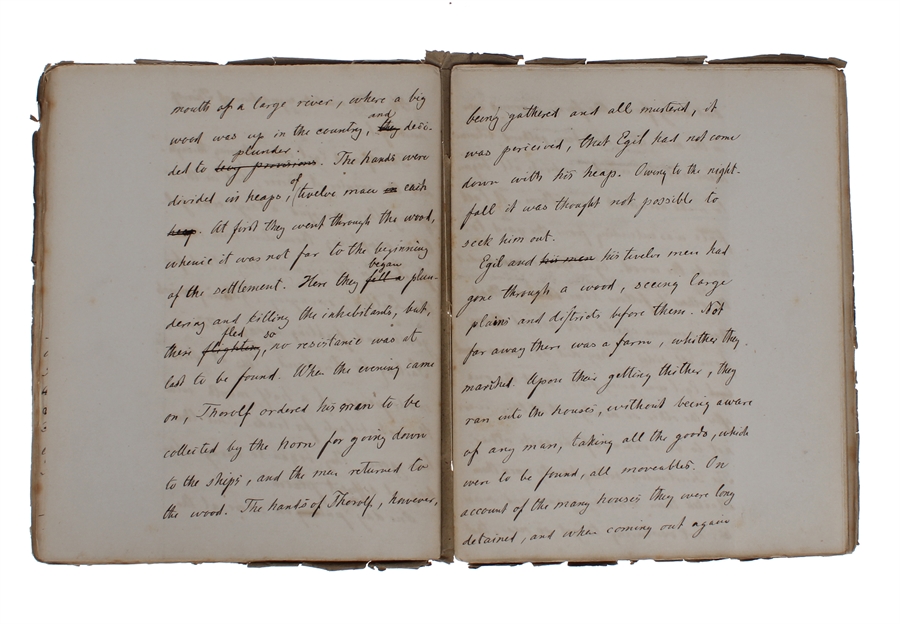 mouth of a large river, where a big
wood was up in the country, they and deci-
ded to buy provisions plunder. The hands were
divided in heaps, of twelve man in each
heap. At first they went through the wood,
whence it was not far to the beginning
of the settlement. Here they fell a began plun-
dering and killing the inhabitants, but,
these flighten fled, so no resistance was at
last to be found. When the evening came
on, Thorolf ordered his man to be
collected by the horn for going down
to the ships, and the men returned to
the wood. The hands of Thorolf, however,
being gathered and all mustered, it
was perceived, that Egil had not come
down with his heap. Owing to the night-
fall it was thought not possible to
seek him out.
Egil and his men his twelve men had
gone through a wood, seeing large
plains and districts before them. Not
far away there was a farm, whither they
marched. Upon their getting thither, they
ran into the houses, without being aware
of any man, taking all the goods, which
were to be found, all moveables. On
account of the many houses they were long
detained, and when coming out again